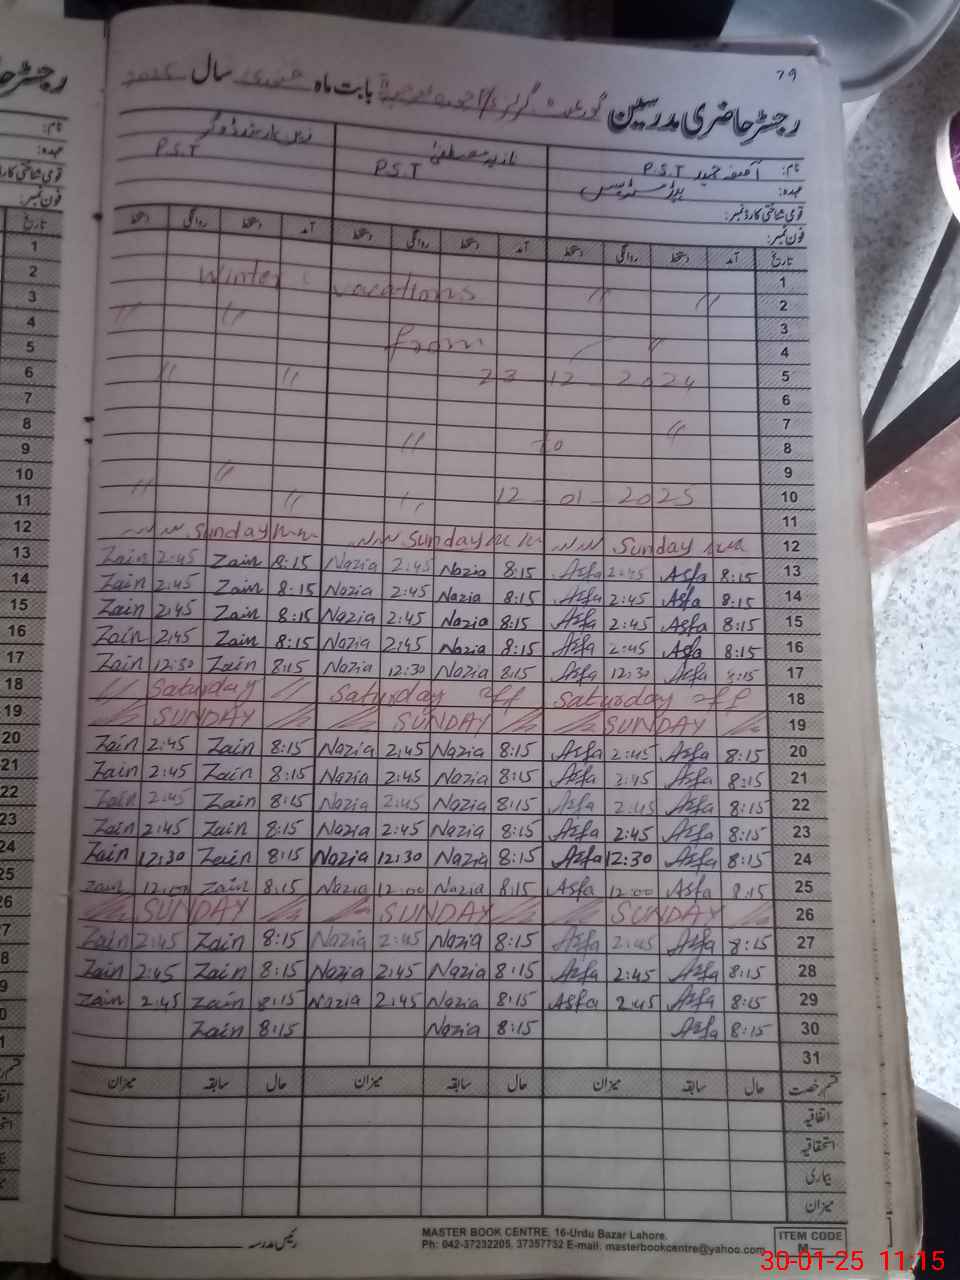 79
رجسٹر حاضری مدرسین گورنمنٹ گرلز بابت ماہ جنوری سال
نام: آصفہ حمید P.S.T نادیہ مصطفیٰ P.S.T P.S.T
عہدہ: ہیڈ مسٹریس
قومی شناختی کارڈ نمبر:
فون نمبر:
تاریخ آمد دستخط روانگی دستخط آمد دستخط روانگی دستخط آمد دستخط روانگی دستخط
1
Winter vacations 〃 〃 2
〃 〃 3
from 〃 4
〃 〃 23 12 2024 5
6
〃 7
〃 To 8
〃 9
〃 〃 〃 12-01-2025 10
11
Sunday Sunday Sunday 12
Zain 2:45 Zain 8:15 Nazia 2:45 Nazia 8:15 Asfa 2:45 Asfa 8:15 13
Zain 2:45 Zain 8:15 Nazia 2:45 Nazia 8:15 Asfa 2:45 Asfa 8:15 14
Zain 2:45 Zain 8:15 Nazia 2:45 Nazia 8:15 Asfa 2:45 Asfa 8:15 15
Zain 2:45 Zain 8:15 Nazia 2:45 Nazia 8:15 Asfa 2:45 Asfa 8:15 16
Zain 12:30 Zain 8:15 Nazia 12:30 Nazia 8:15 Asfa 12:30 Asfa 8:15 17
〃 Saturday 〃 Saturday off Saturday off 18
SUNDAY SUNDAY SUNDAY 19
Zain 2:45 Zain 8:15 Nazia 2:45 Nazia 8:15 Asfa 2:45 Asfa 8:15 20
Zain 2:45 Zain 8:15 Nazia 2:45 Nazia 8:15 Asfa 2:45 Asfa 8:15 21
Zain 2:45 Zain 8:15 Nazia 2:45 Nazia 8:15 Asfa 2:45 Asfa 8:15 22
Zain 2:45 Zain 8:15 Nazia 2:45 Nazia 8:15 Asfa 2:45 Asfa 8:15 23
Zain 12:30 Zain 8:15 Nazia 12:30 Nazia 8:15 Asfa 12:30 Asfa 8:15 24
Zain 12:00 Zain 8:15 Nazia 12:00 Nazia 8:15 Asfa 12:00 Asfa 8:15 25
SUNDAY SUNDAY SUNDAY 26
Zain 2:45 Zain 8:15 Nazia 2:45 Nazia 8:15 Asfa 2:45 Asfa 8:15 27
Zain 2:45 Zain 8:15 Nazia 2:45 Nazia 8:15 Asfa 2:45 Asfa 8:15 28
Zain 2:45 Zain 8:15 Nazia 2:45 Nazia 8:15 Asfa 2:45 Asfa 8:15 29
Zain 8:15 Nazia 8:15 Asfa 8:15 30
31
قسم رخصت حال سابقہ میزان حال سابقہ میزان حال سابقہ میزان
اتفاقیہ
استحقاقیہ
بیماری
میزان
رئیس مدرسہ
MASTER BOOK CENTRE, 16-Urdu Bazar Lahore.
Ph: 042-37232205, 37357732 E-mail: masterbookcentre@yahoo.com
ITEM CODE
M—
30-01-25 11:15